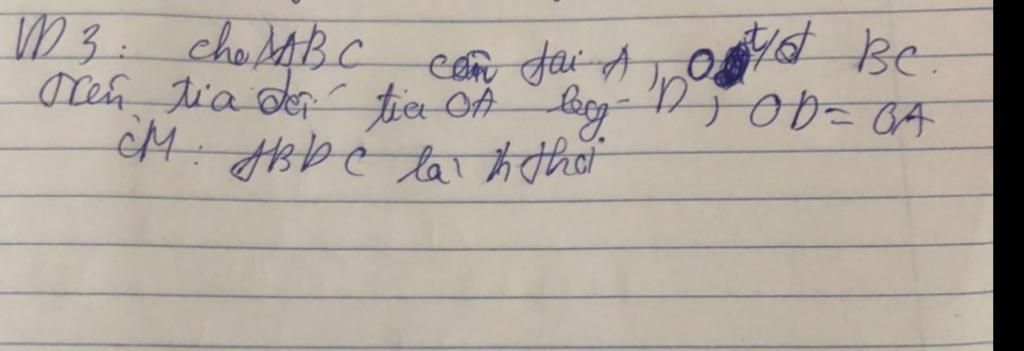 VD 3: cho ΔABC cân tại A, O t/đ BC.
Trên tia đối tia OA lấy D, OD = OA
CM: ABDC là h thoi